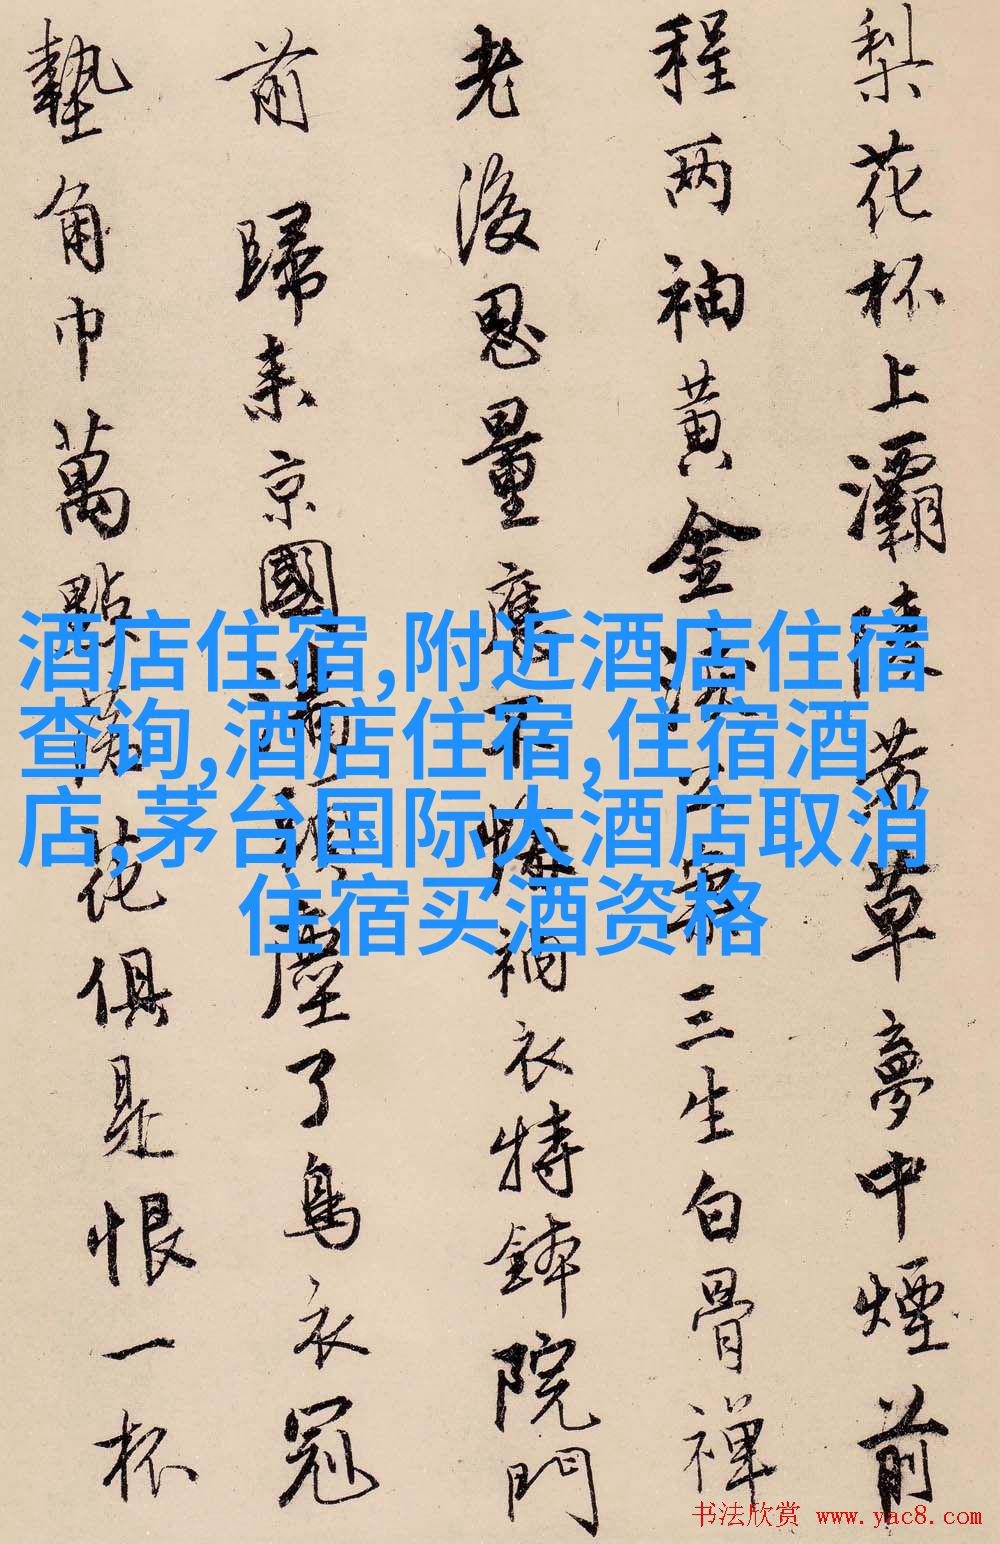 梨花杯上灞陵芳草夢中煙前
程两袖黄金淚公案三生白骨禅
老後思量應不悔衲衣持鉢院門
前 歸来京國滿頭塵了烏衣冠
墊角巾萬點落花俱是恨一杯
酒店住宿,附近酒店住宿
查询,酒店住宿,住宿酒
店,茅台国际大酒店取消
住宿买酒资格
书法欣赏 www.yac8.com